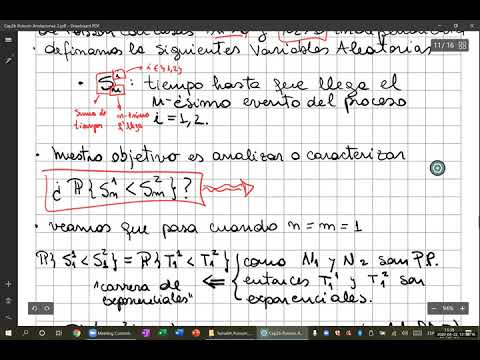 Cap2b-Poisson-Anotaciones 2.pdf - Drawboard PDF
11 / 16
definamos la siguientes Variables Aleatorias
i ∈ {1,2}
• S_n^i : tiempo hasta que llega el
n-ésimo evento del proceso
i = 1, 2.
Suma de tiempos
n-ésimo
• Nuestro objetivo es analizar o caracterizar
¿ P{ S_n^1 < S_m^2 } ?
• veamos que pasa cuando n = m = 1
P{ S_1^1 < S_1^2 } = P{ T_1^1 < T_1^2 } ⇐ { como N_1 y N_2 son P.P.
entonces T_1^1 y T_1^2 son
exponenciales.
"carrera de
exponenciales"
94%
Meeting Controls
ESP